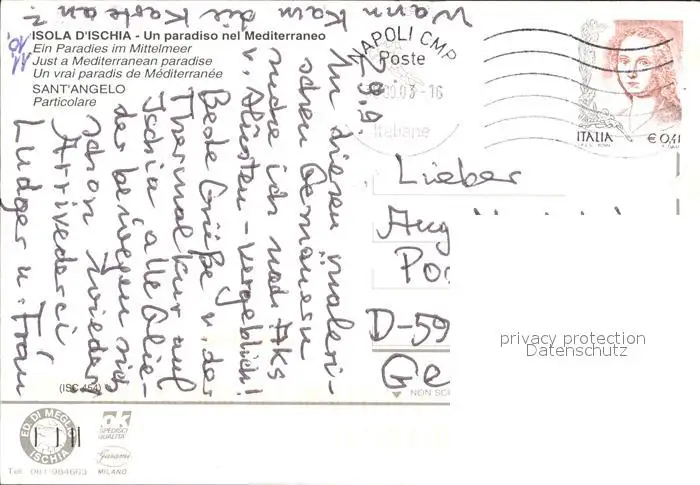 ISOLA D'ISCHIA - Un paradiso nel Mediterraneo
Ein Paradies im Mittelmeer
Just a Mediterranean paradise
Un vrai paradis de Méditerranée
SANT'ANGELO
Particolare
11.
10.
29.9.
In diesem maleri-
schen Gemäuern
suche ich nach Aks
v. Künsten - vergeblich!
Beste Grüße v. der
Thermalkur auf
Ischia, alle Glie-
der bewegen sich
schon wieder
Arrivederci
Ludger u. Frau
Wann kam die Karte an?
NAPOLI CMP
Poste
03-16
Italiane
ITALIA
€ 0,41
Lieber
Aug
Po
D-59
Ge
privacy protection
Datenschutz
NON SC
(ISC 454)
ED. DI MEGLIO
ISCHIA
Tel. 081*984663
OK
SPECIOSI
QUALITA'
Garami
MILANO